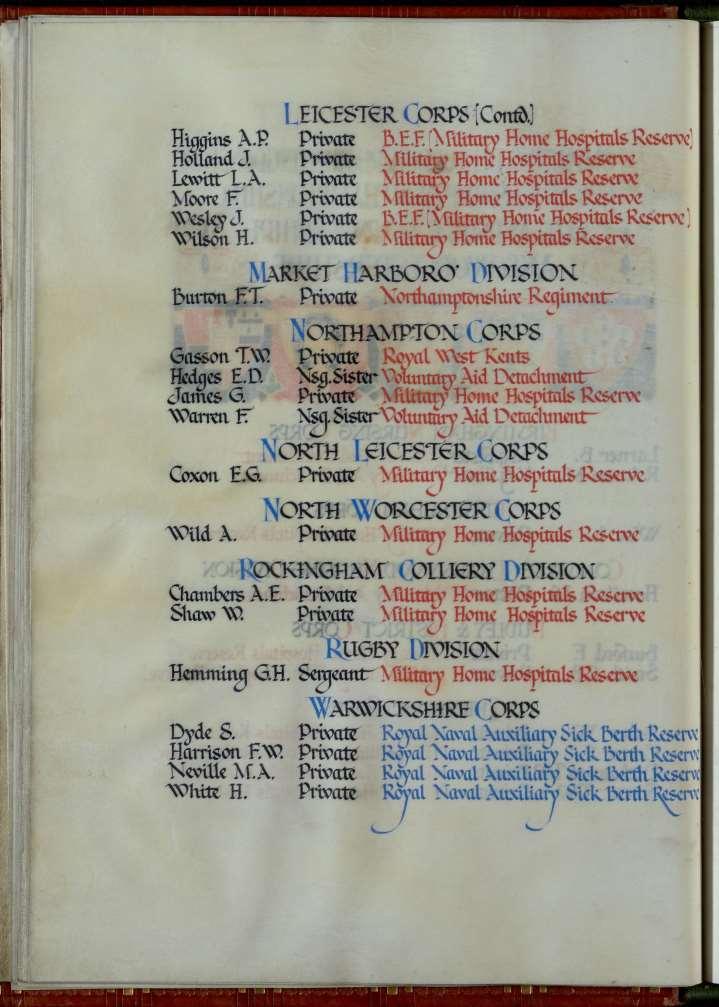 LEICESTER CORPS [Contd.]
Higgins A.P. Private B.E.F. [Military Home Hospitals Reserve]
Holland J. Private Military Home Hospitals Reserve
Lewitt L.A. Private Military Home Hospitals Reserve
Moore F. Private Military Home Hospitals Reserve
Wesley J. Private B.E.F. [Military Home Hospitals Reserve]
Wilson H. Private Military Home Hospitals Reserve
MARKET HARBORO' DIVISION
Burton F.T. Private Northamptonshire Regiment
NORTHAMPTON CORPS
Gasson T.W. Private Royal West Kents
Hedges E.D. Nsg. Sister Voluntary Aid Detachment
James G. Private Military Home Hospitals Reserve
Warren F. Nsg. Sister Voluntary Aid Detachment
NORTH LEICESTER CORPS
Coxon E.G. Private Military Home Hospitals Reserve
NORTH WORCESTER CORPS
Wild A. Private Military Home Hospitals Reserve
ROCKINGHAM COLLIERY DIVISION
Chambers A.E. Private Military Home Hospitals Reserve
Shaw W. Private Military Home Hospitals Reserve
RUGBY DIVISION
Hemming G.H. Sergeant Military Home Hospitals Reserve
WARWICKSHIRE CORPS
Dyde S. Private Royal Naval Auxiliary Sick Berth Reserve
Harrison F.W. Private Royal Naval Auxiliary Sick Berth Reserve
Neville M.A. Private Royal Naval Auxiliary Sick Berth Reserve
White H. Private Royal Naval Auxiliary Sick Berth Reserve